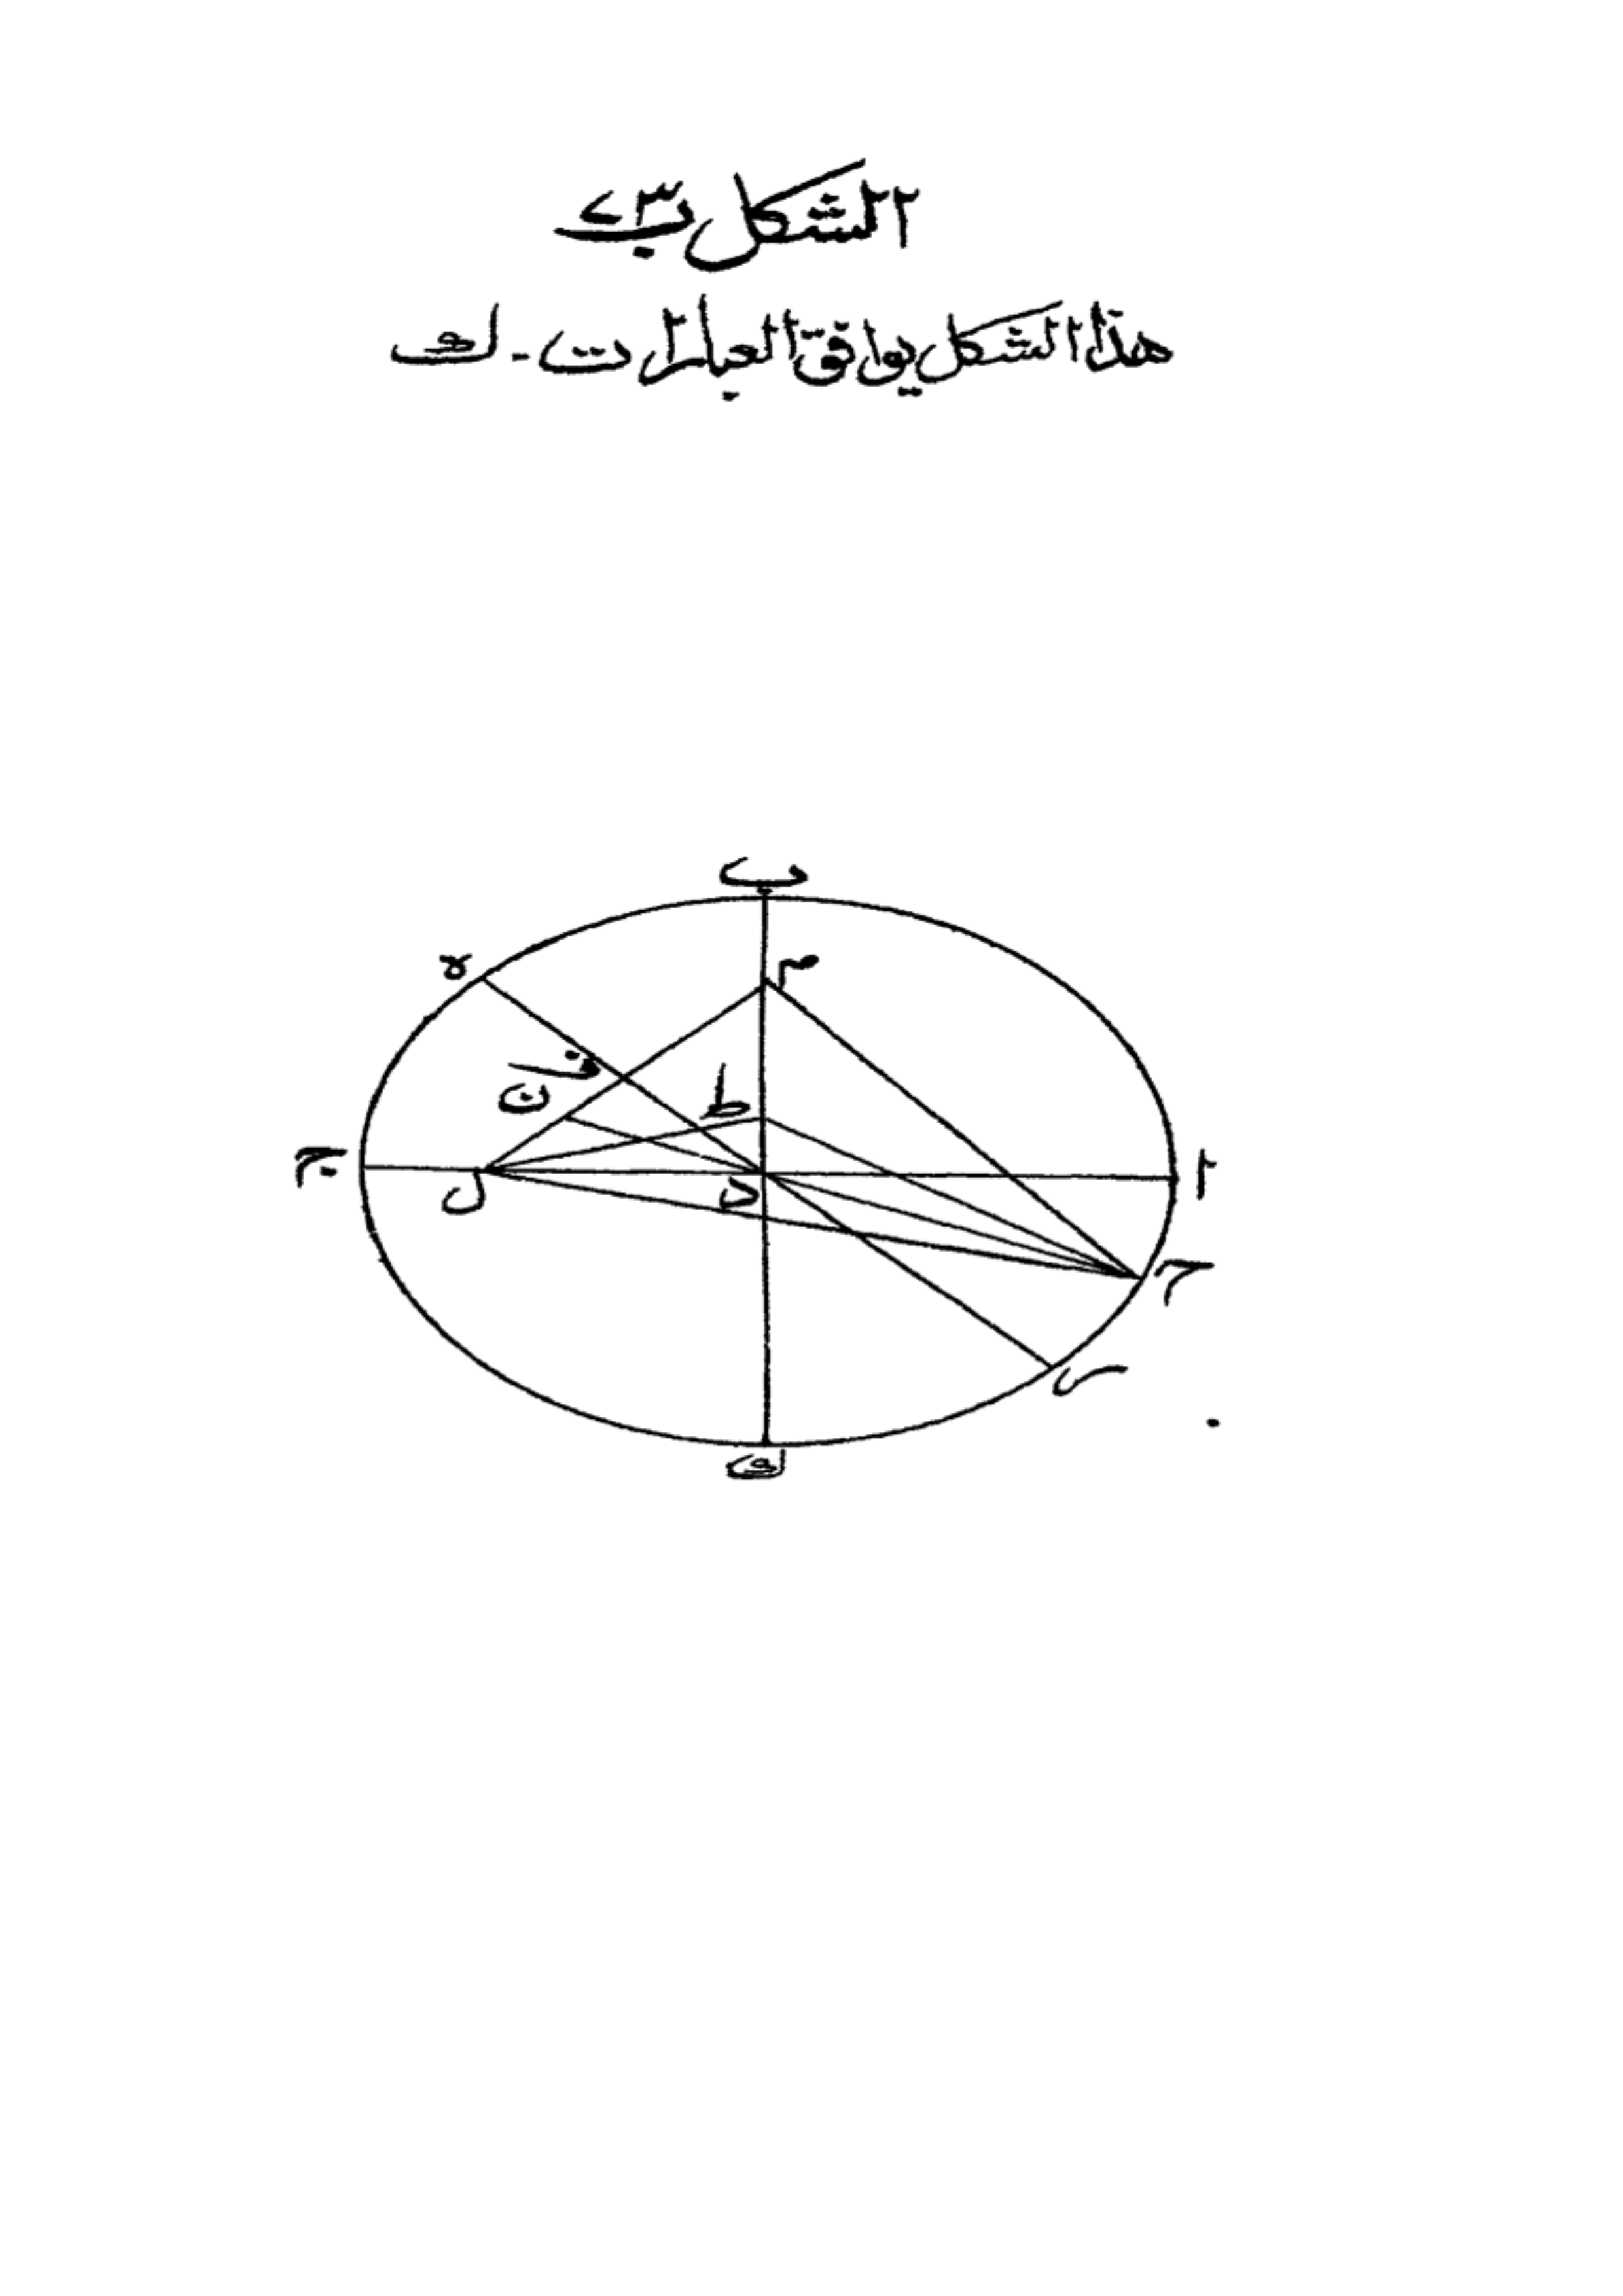 الشكل ب
هذا الشكل يوافق العبارات - ك
ب
ه
م
ف
ن
ط
ج
ل
د
ا
ح
ر
ك